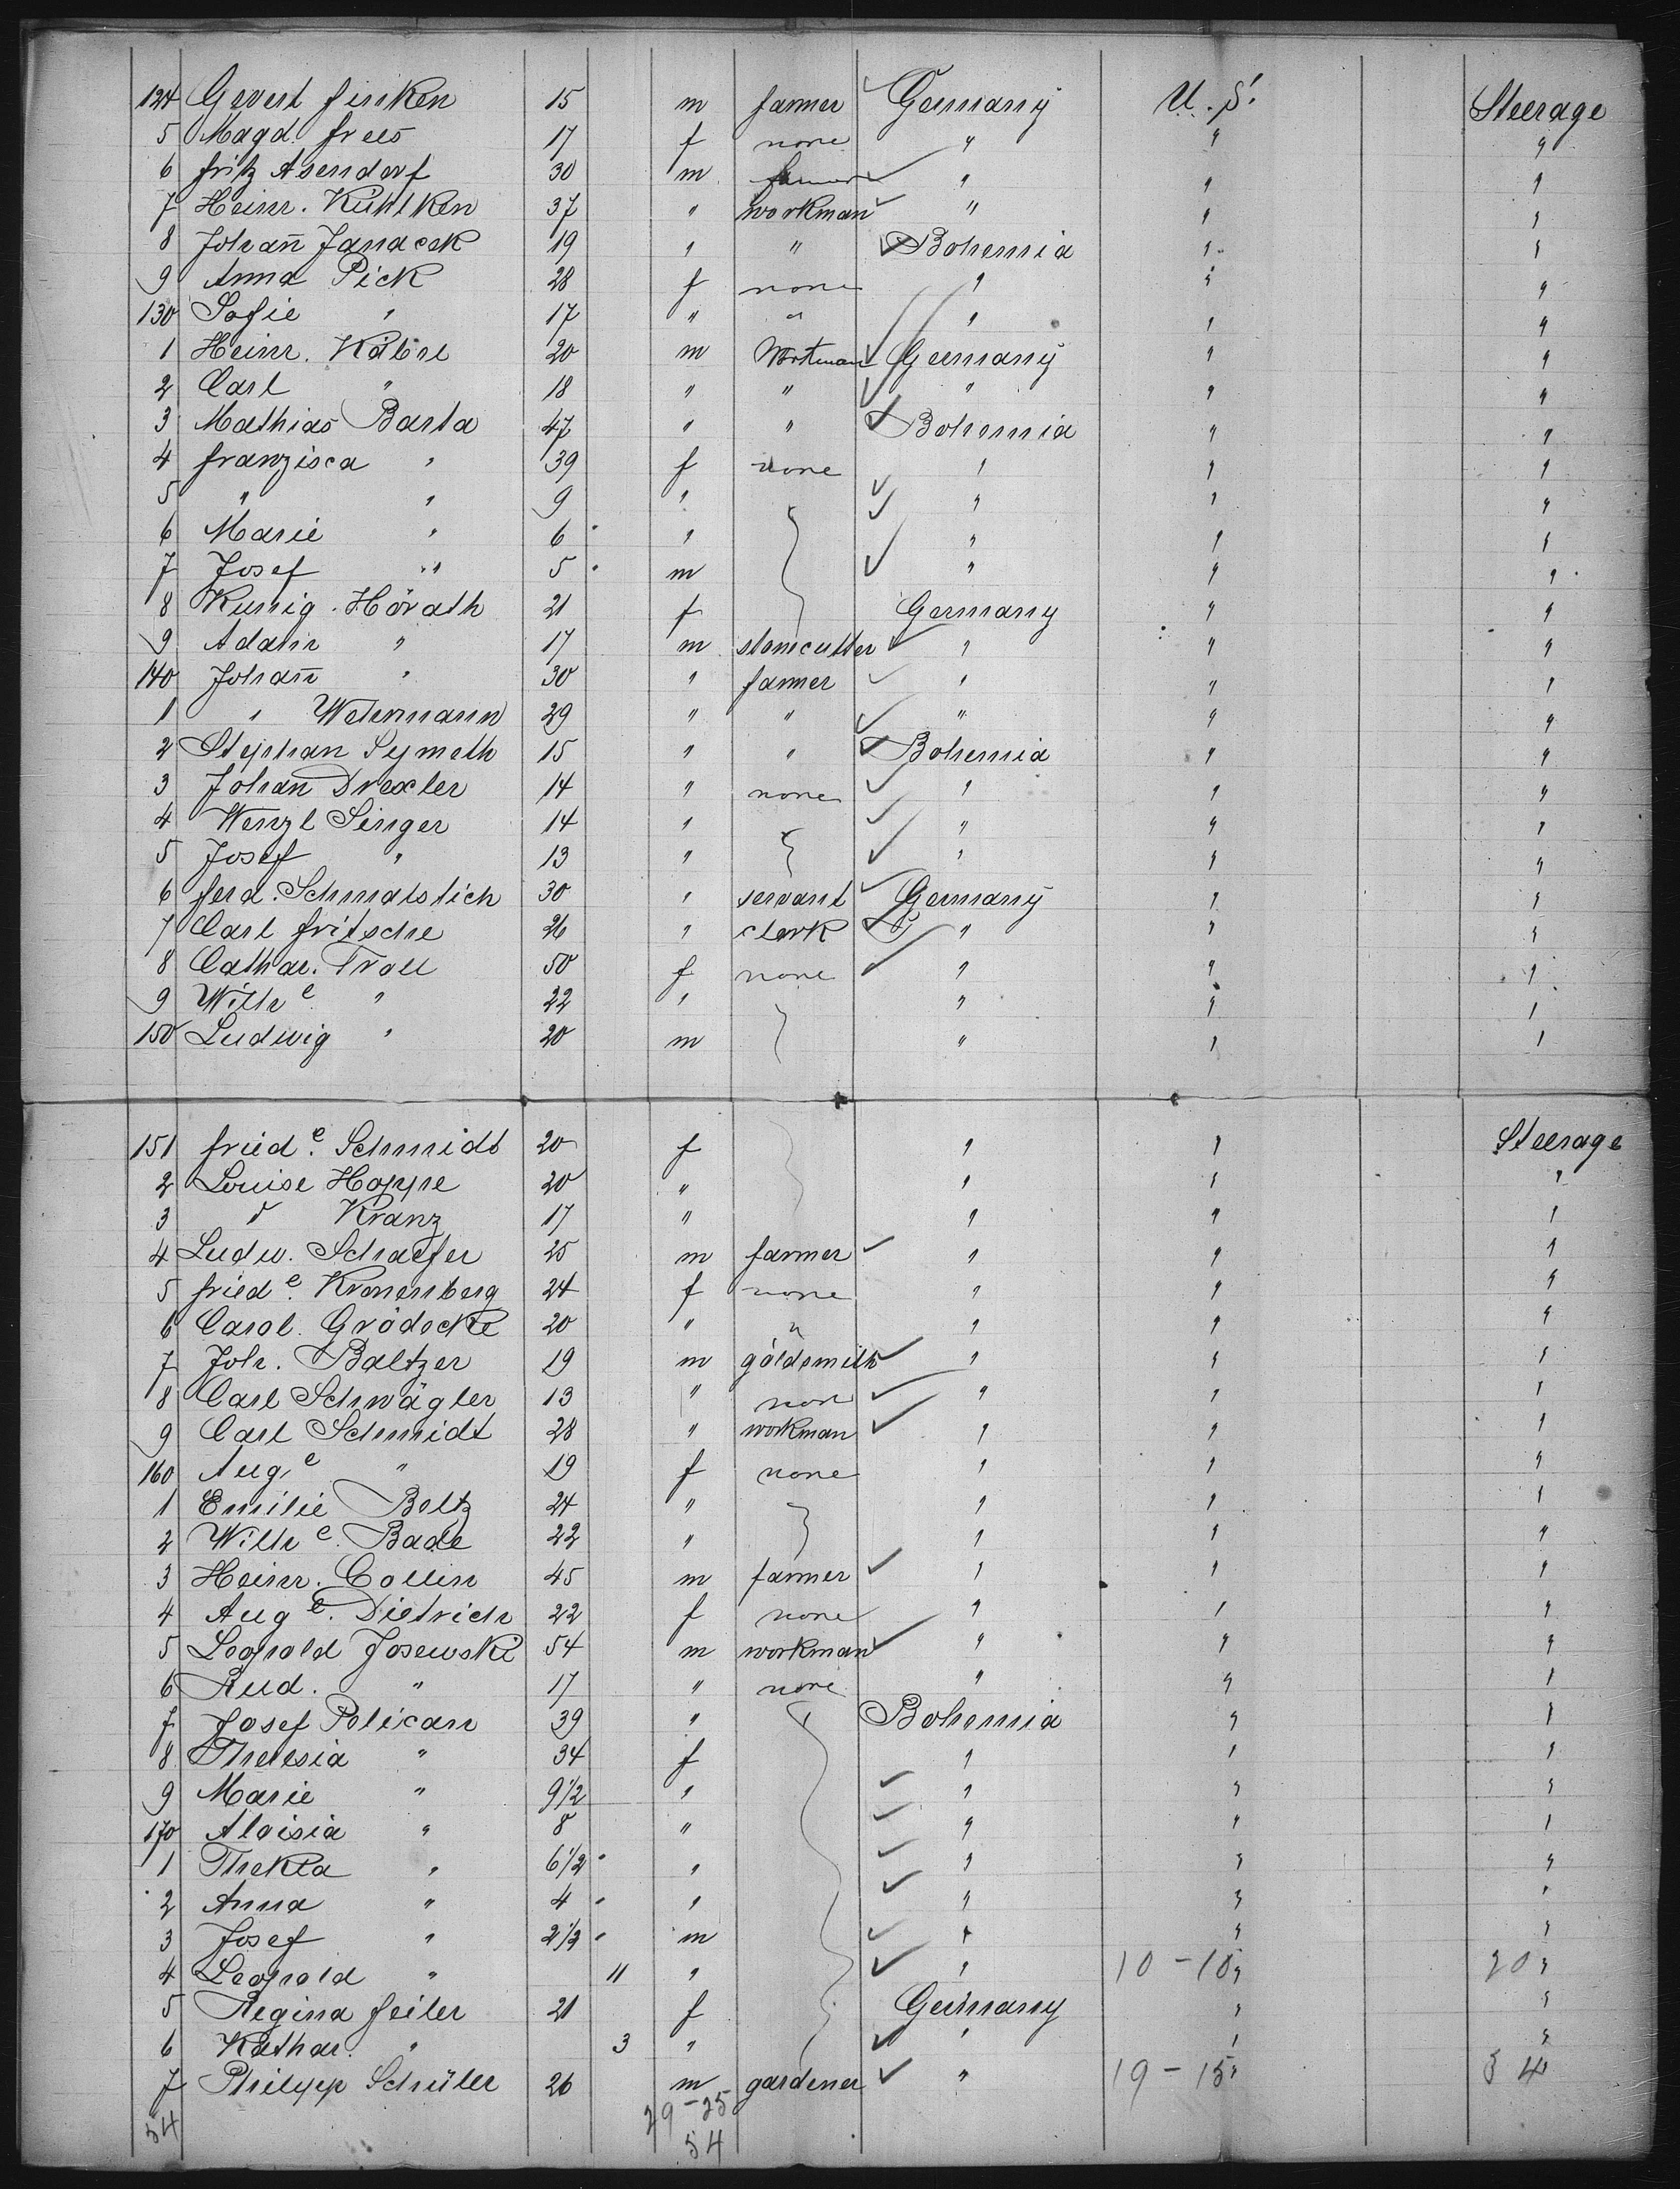 124 Gevert Finken 15 m farmer Germany U.S. Steerage
5 Magd. Frees 17 f none " " "
6 Fritz Asendorf 30 m farmer " " "
7 Heinr. Kühlken 37 " workman " " "
8 Johan̄ Janacek 19 " " Bohemia " "
9 Anna Pick 28 f none " " "
130 Sofie " 17 " " " " "
1 Heinr. 20 m Germany " "
2 Carl " 18 " " " " "
3 Mathias Barta 47 " " Bohemia " "
4 Franzisca " 39 f none " " "
5 " " 9 " " " "
6 Marie " 6 " " " "
7 Josef " 5 m " " "
8 Kunig. Hörath 21 f Germany " "
9 Adam " 17 m stonecutter " " "
140 Johan̄ " 30 " farmer " " "
1 " Wetermann 29 " " " " "
2 Stephan Symeth 15 " " Bohemia " "
3 Johan̄ Drexler 14 " none " " "
4 Wenzl Singer 14 " " " "
5 Josef " 13 " " " "
6 Ferd. Schmalstich 30 " servant Germany " "
7 Carl Fritsche 26 " clerk " " "
8 Cathar. Troll 50 f none " " "
9 Wilhe " 22 " " " "
150 Ludwig " 20 m " " "
151 Friede. Schmidt 20 f " " Steerage
2 Louise Hoppe 20 " " " "
3 " Kranz 17 " " " "
4 Ludw. Schaefer 25 m farmer " " "
5 Friede. Kronenberg 24 f none " " "
6 Carol. Grödecke 20 " " " " "
7 Joh. Baltzer 19 m goldsmith " " "
8 Carl Schwägler 13 " none " " "
9 Carl Schmidt 28 " workman " " "
160 Auge " 19 f none " " "
1 Emilie Beltz 24 " " " "
2 Wilhe. Bade 22 " " " "
3 Heinr. Collin 45 m farmer " " "
4 Auge. Dietrich 22 f none " " "
5 Leopold Josewski 54 m workman " " "
6 Rud. " 17 " none " " "
7 Josef Polican 39 " Bohemia " "
8 Theresia " 34 f " " "
9 Marie " 9 1/2 " " " "
170 Aloisia " 8 " " " "
1 Thekla " 6 1/2 " " " "
2 Anna " 4 " " " "
3 Josef " 2 1/2 m " " "
4 Leopold " 11 " " 10 - 10 " 20 "
5 Regina Feiler 21 f Germany " "
6 Kathar. " 3 " " " "
7 Philipp Schüler 26 m gardener " 19 - 15 " 34
54 29 - 25
54